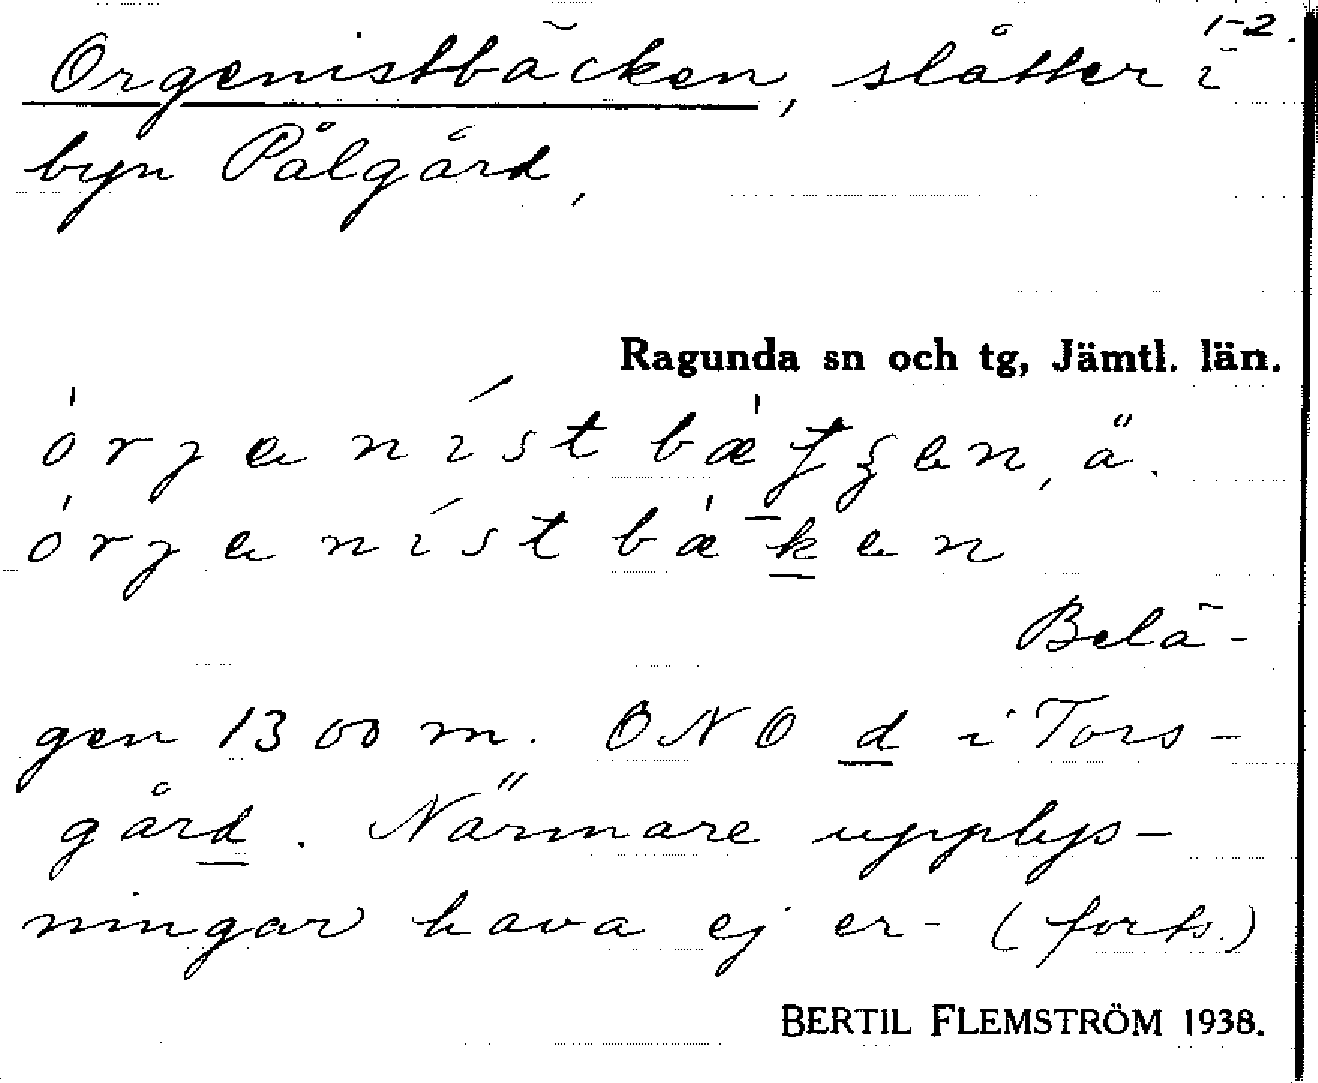 1-2.
Orgenistbäcken, slåtter i
byn Pålgård,
Ragunda sn och tg, Jämtl. län.
örjenistbæ, ä.
örjenistbæken
Belä-
gen 1300 m. ONO d i Tors-
gård. Närmare upplys-
ningar hava ej er- (forts.)
BERTIL FLEMSTRÖM 1938.